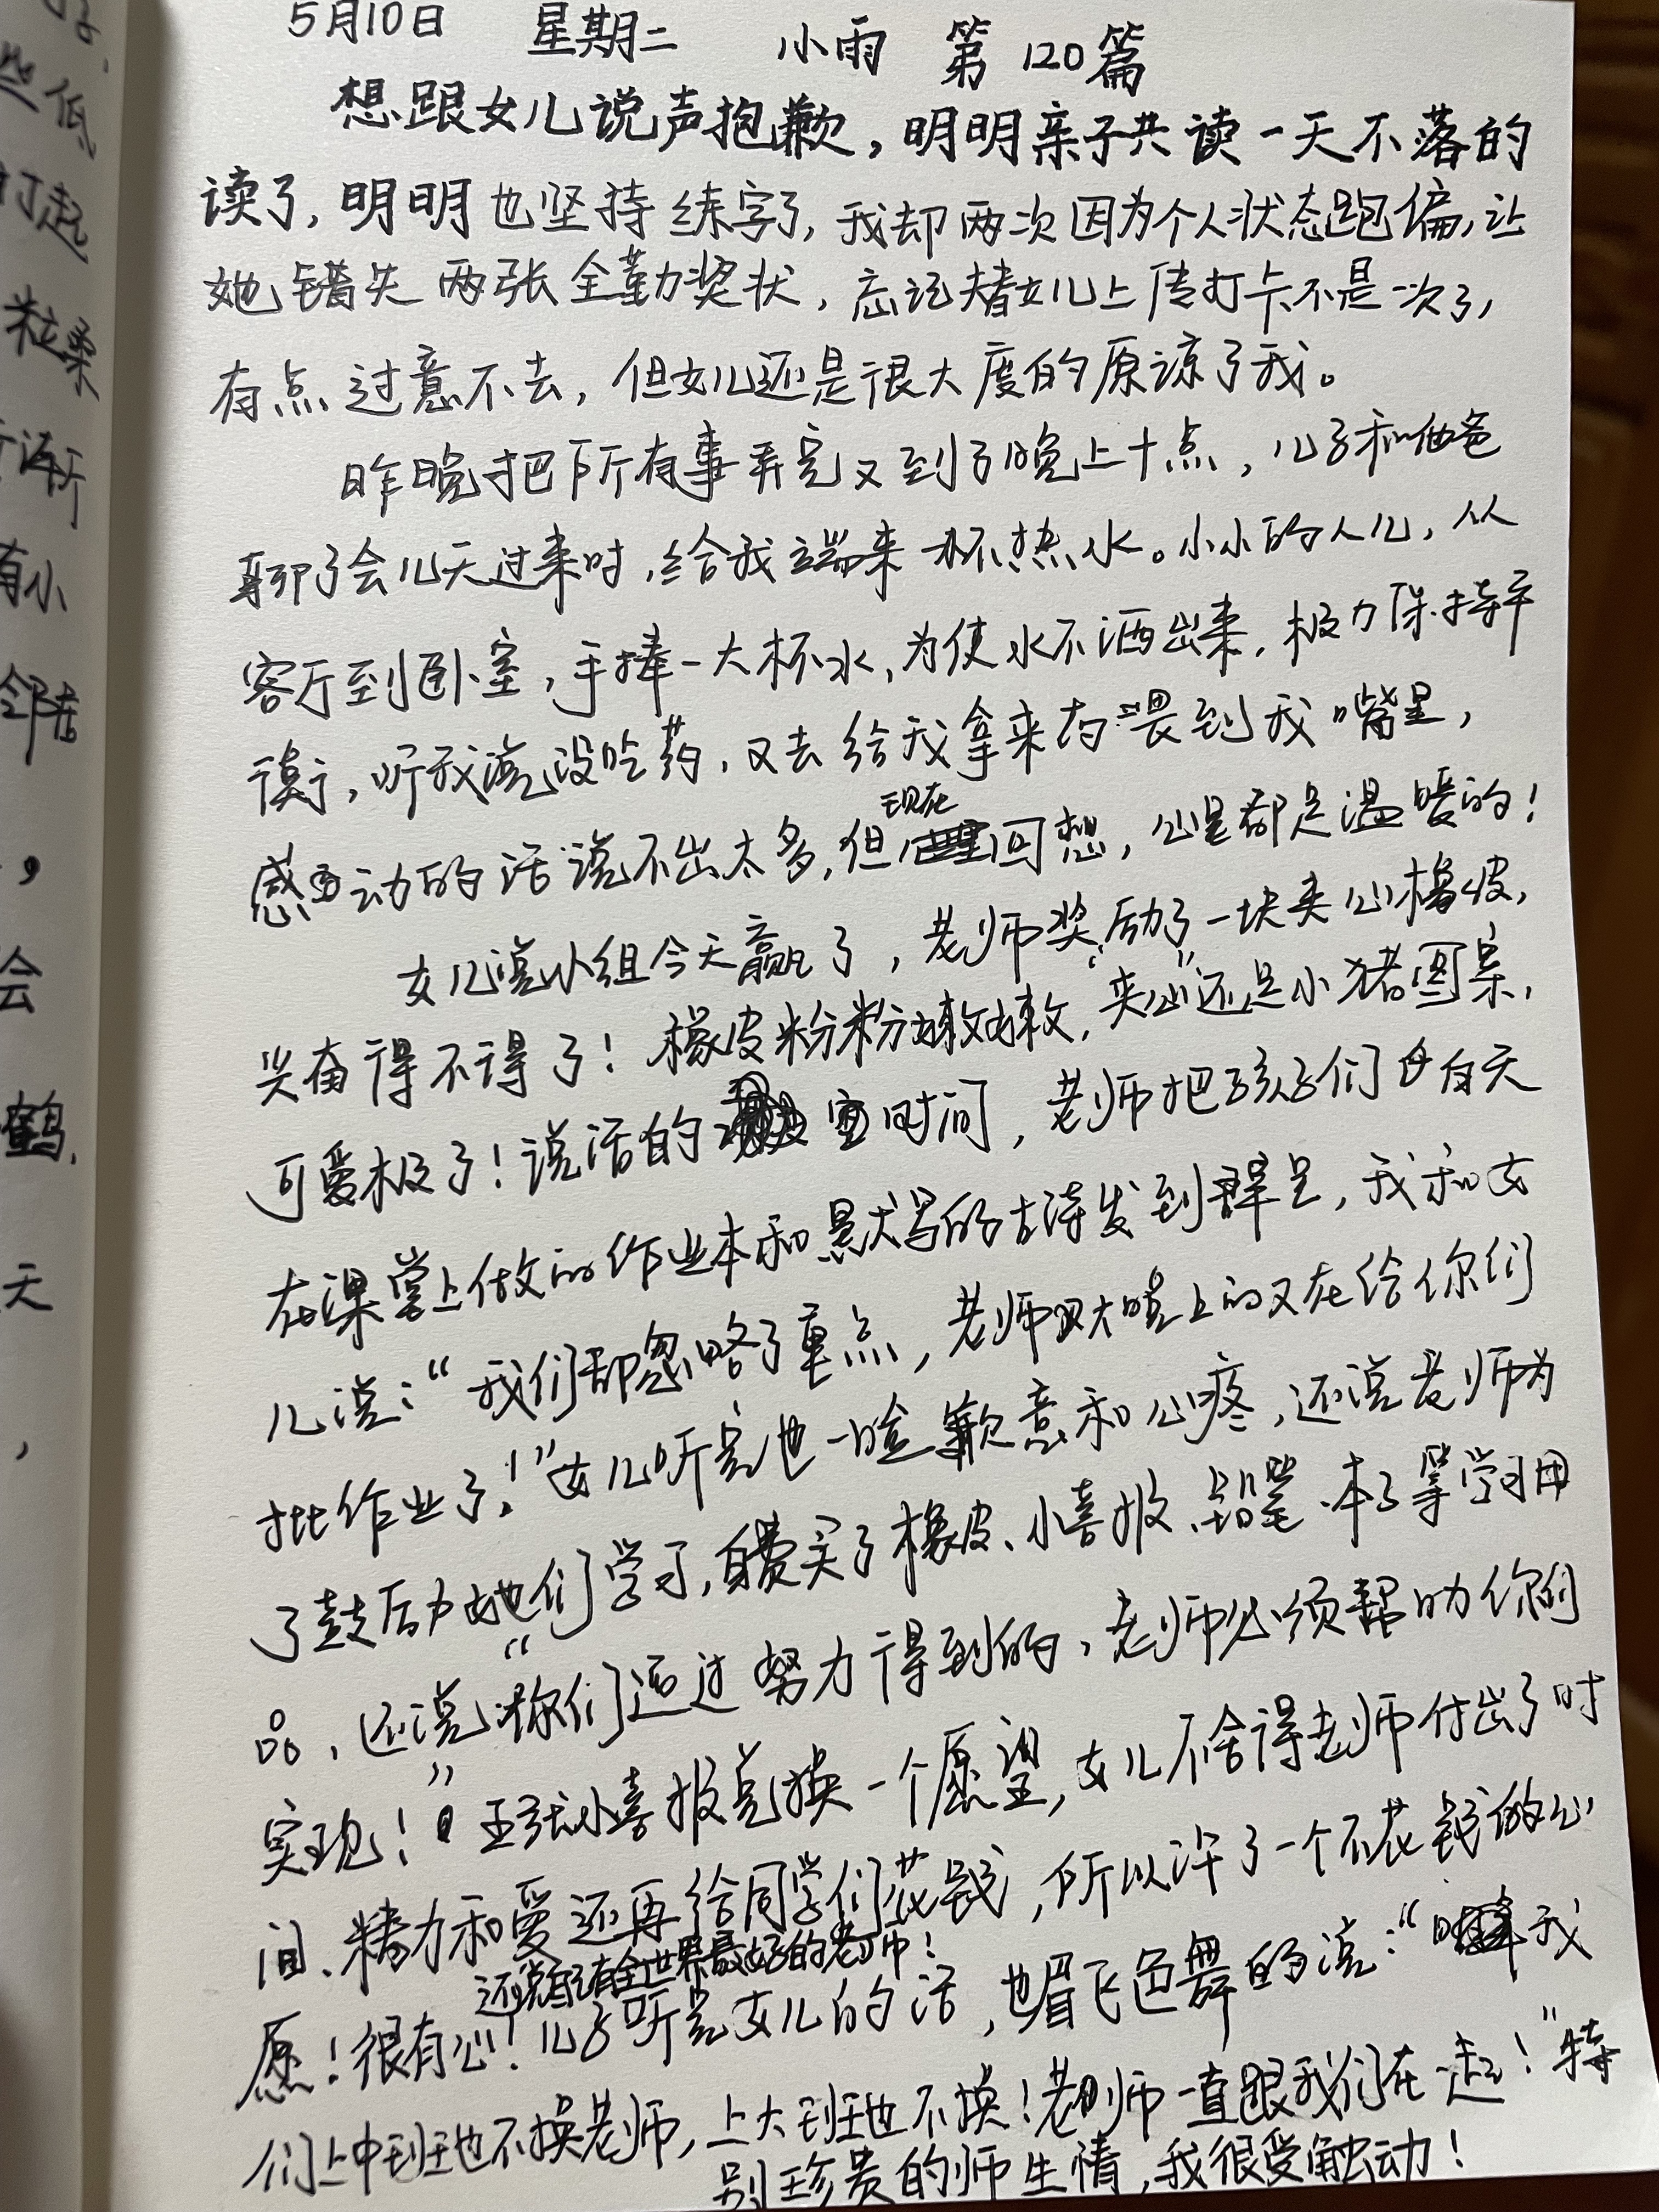 5月10日 星期二 小雨 第120篇
想跟女儿说声抱歉，明明亲子共读一天不落的
读了，明明也坚持练字了，我却两次因为个人状态跑偏，让
她错失两张全勤奖状，忘记替女儿上传打卡不是一次了，
有点过意不去，但女儿还是很大度的原谅了我。
昨晚把所有事弄完又到了晚上十点，儿子和他爸
聊了会儿天过来时，给我端来一杯热水。小小的人儿，从
客厅到卧室，手捧一大杯水，为使水不洒出来，极力保持平
衡，听我说没吃药，又去给我拿来药喂到我嘴里，
感动的话说不出太多，但现在回想，心里都是温暖的！
女儿说小组今天赢了，老师奖励了一块夹心橡皮，
兴奋得不得了！橡皮粉粉嫩嫩，“夹心”还是小猪图案，
可爱极了！说话的空时间，老师把孩子们白天
在课堂上做的作业本和默写的古诗发到群里，我和女
儿说：“我们都忽略了重点，老师大晚上的又在给你们
批作业了！”女儿听完也一脸歉意和心疼，还说老师为
了鼓励她们学习，自费买了橡皮、小喜报、铅笔、本子等学习用
品，还说“你们通过努力得到的，老师必须帮助你们
实现！”五张小喜报兑换一个愿望，女儿不舍得老师付出了时
间、精力和爱还再给同学们花钱，所以许了一个不花钱的心
还说自己有全世界最好的老师！
愿！很有心！儿子听完女儿的话，也眉飞色舞的说：“我
们上中班也不换老师，上大班也不换！老师一直跟我们在一起！”特
别珍贵的师生情，我很受触动！
些低
打起
粒柔
有小
邻居
，
会
鹤
天
，